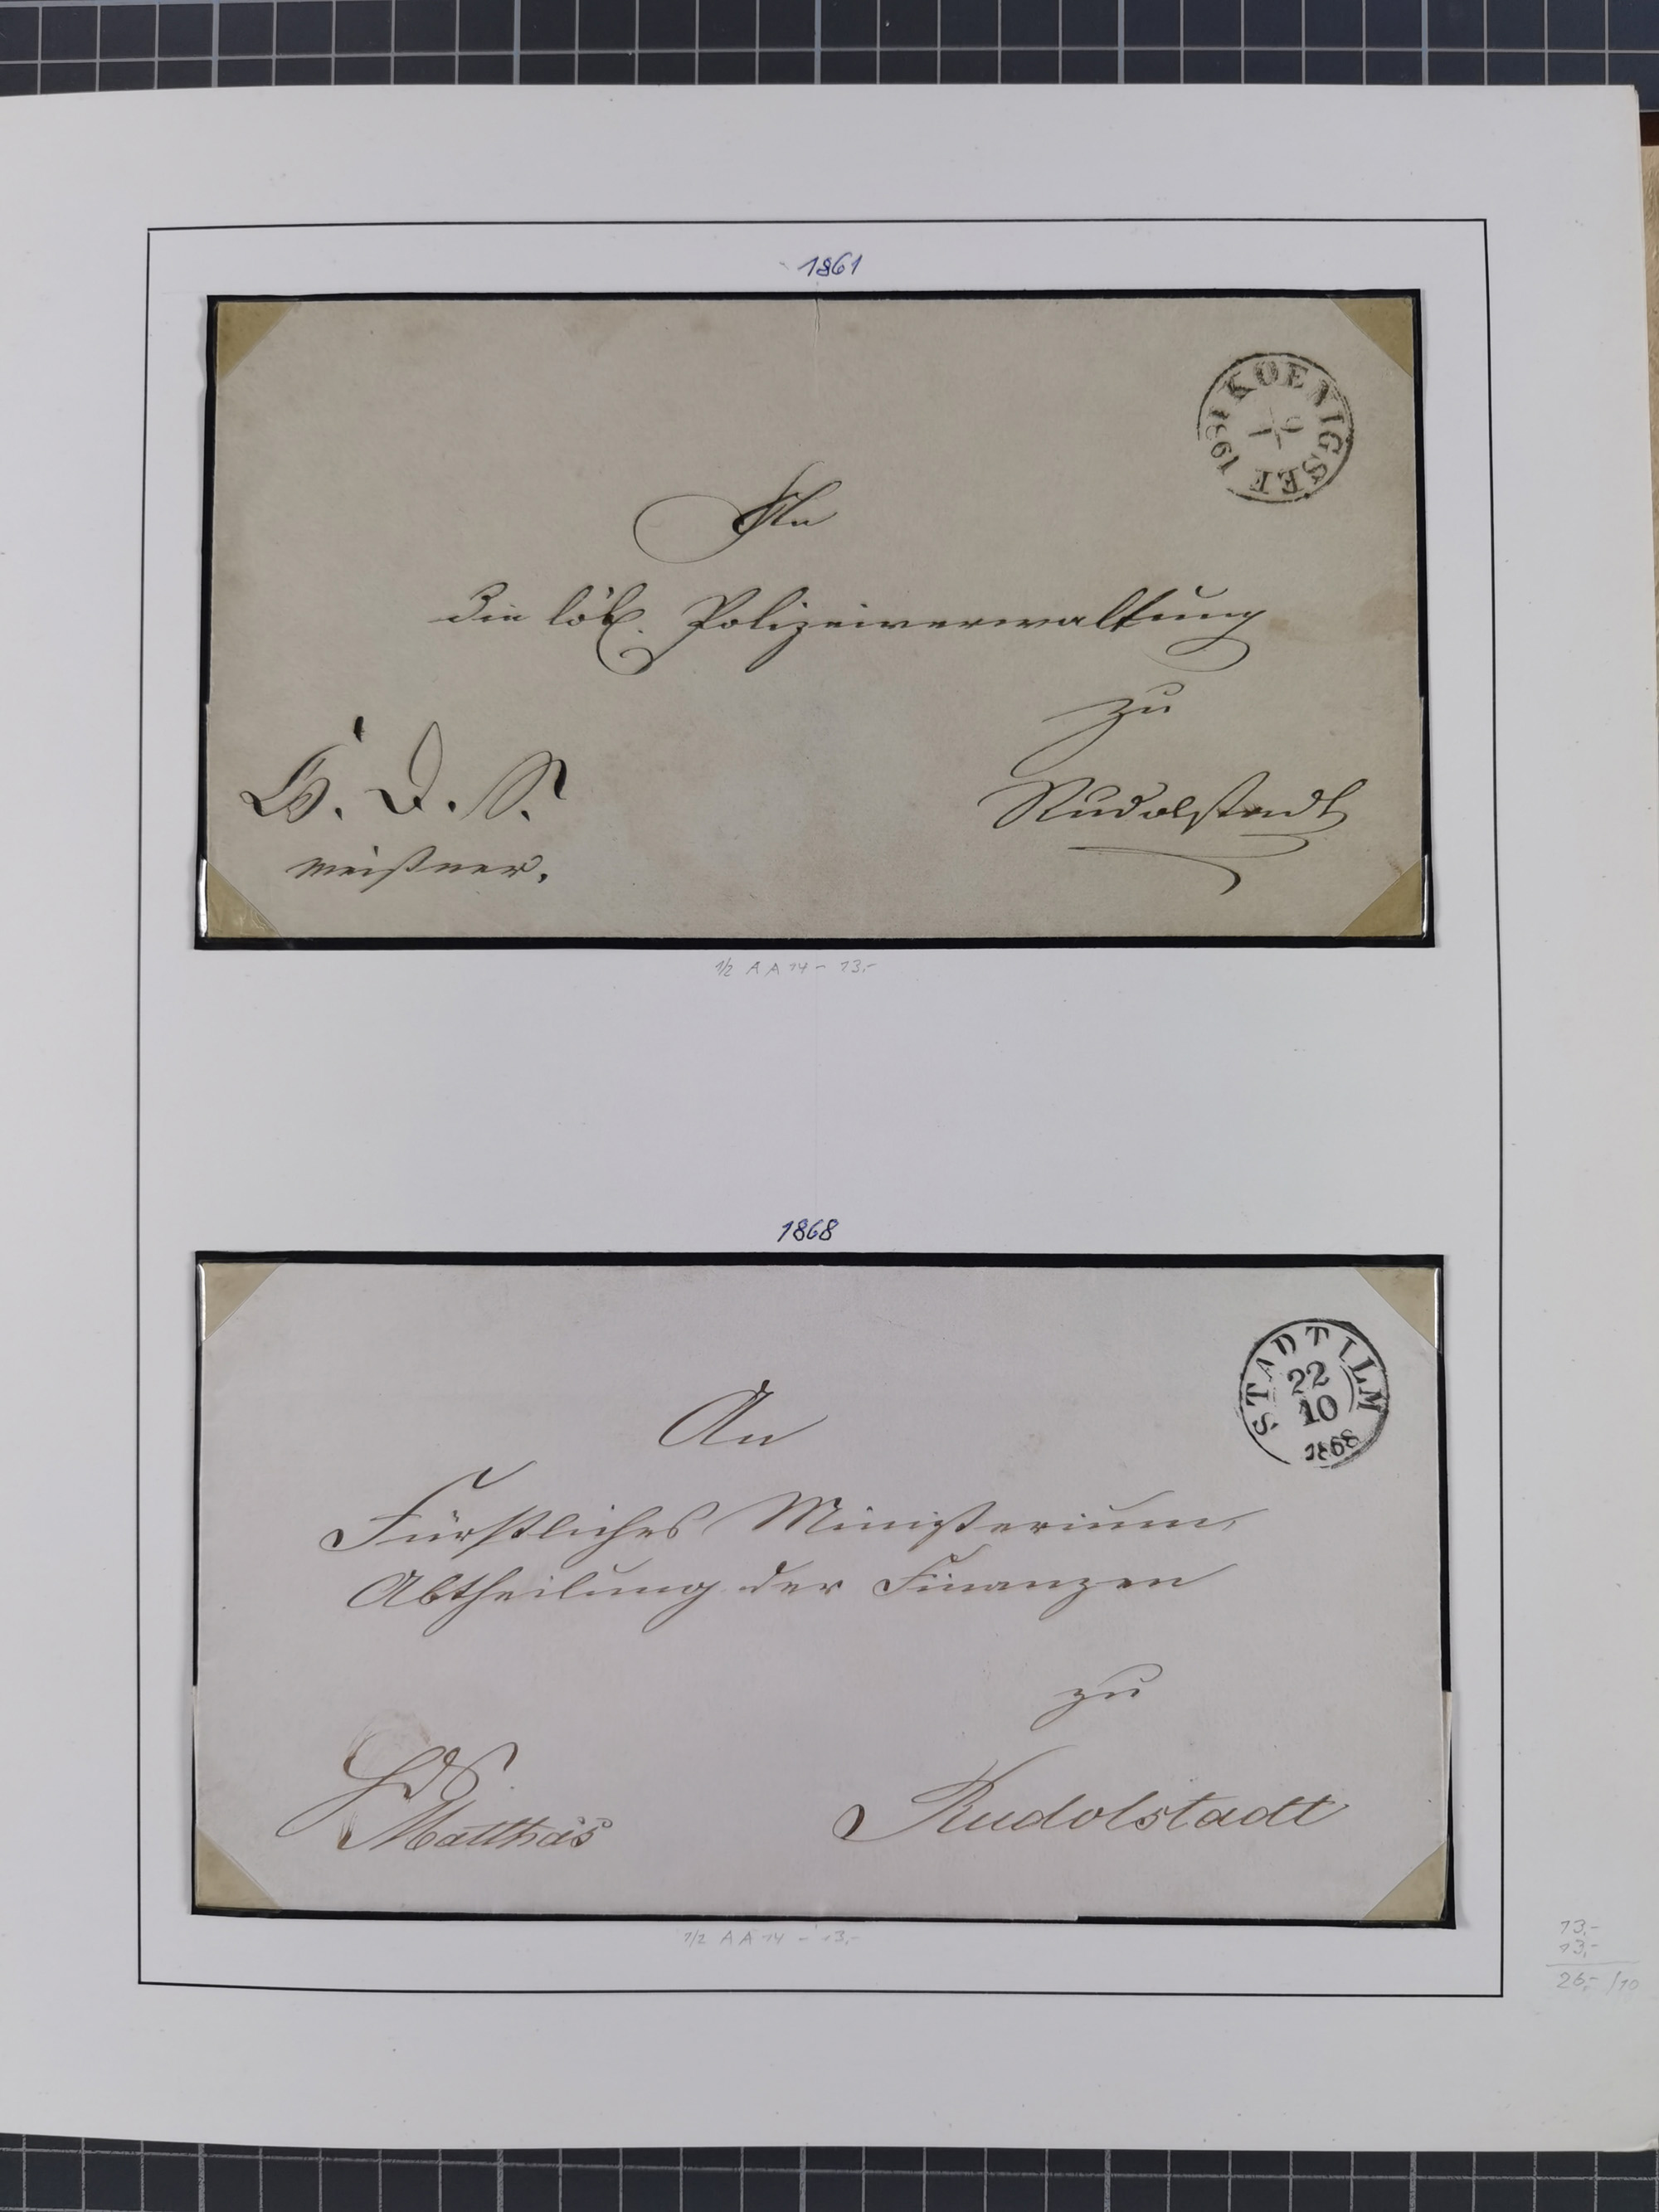 1861
KOENIGSEE 1861
An
die löbl. Polizeiverwaltung
zu
Rudolstadt
Meißner.
1/2 A A 14 - 13,-
1868
STADTILM
22
10
1868
An
Fürstliches Ministerium,
Abtheilung der Finanzen
zu
Rudolstadt
Matthäs
1/2 A A 14 - 13,-
13,-
13,-
26,- /10